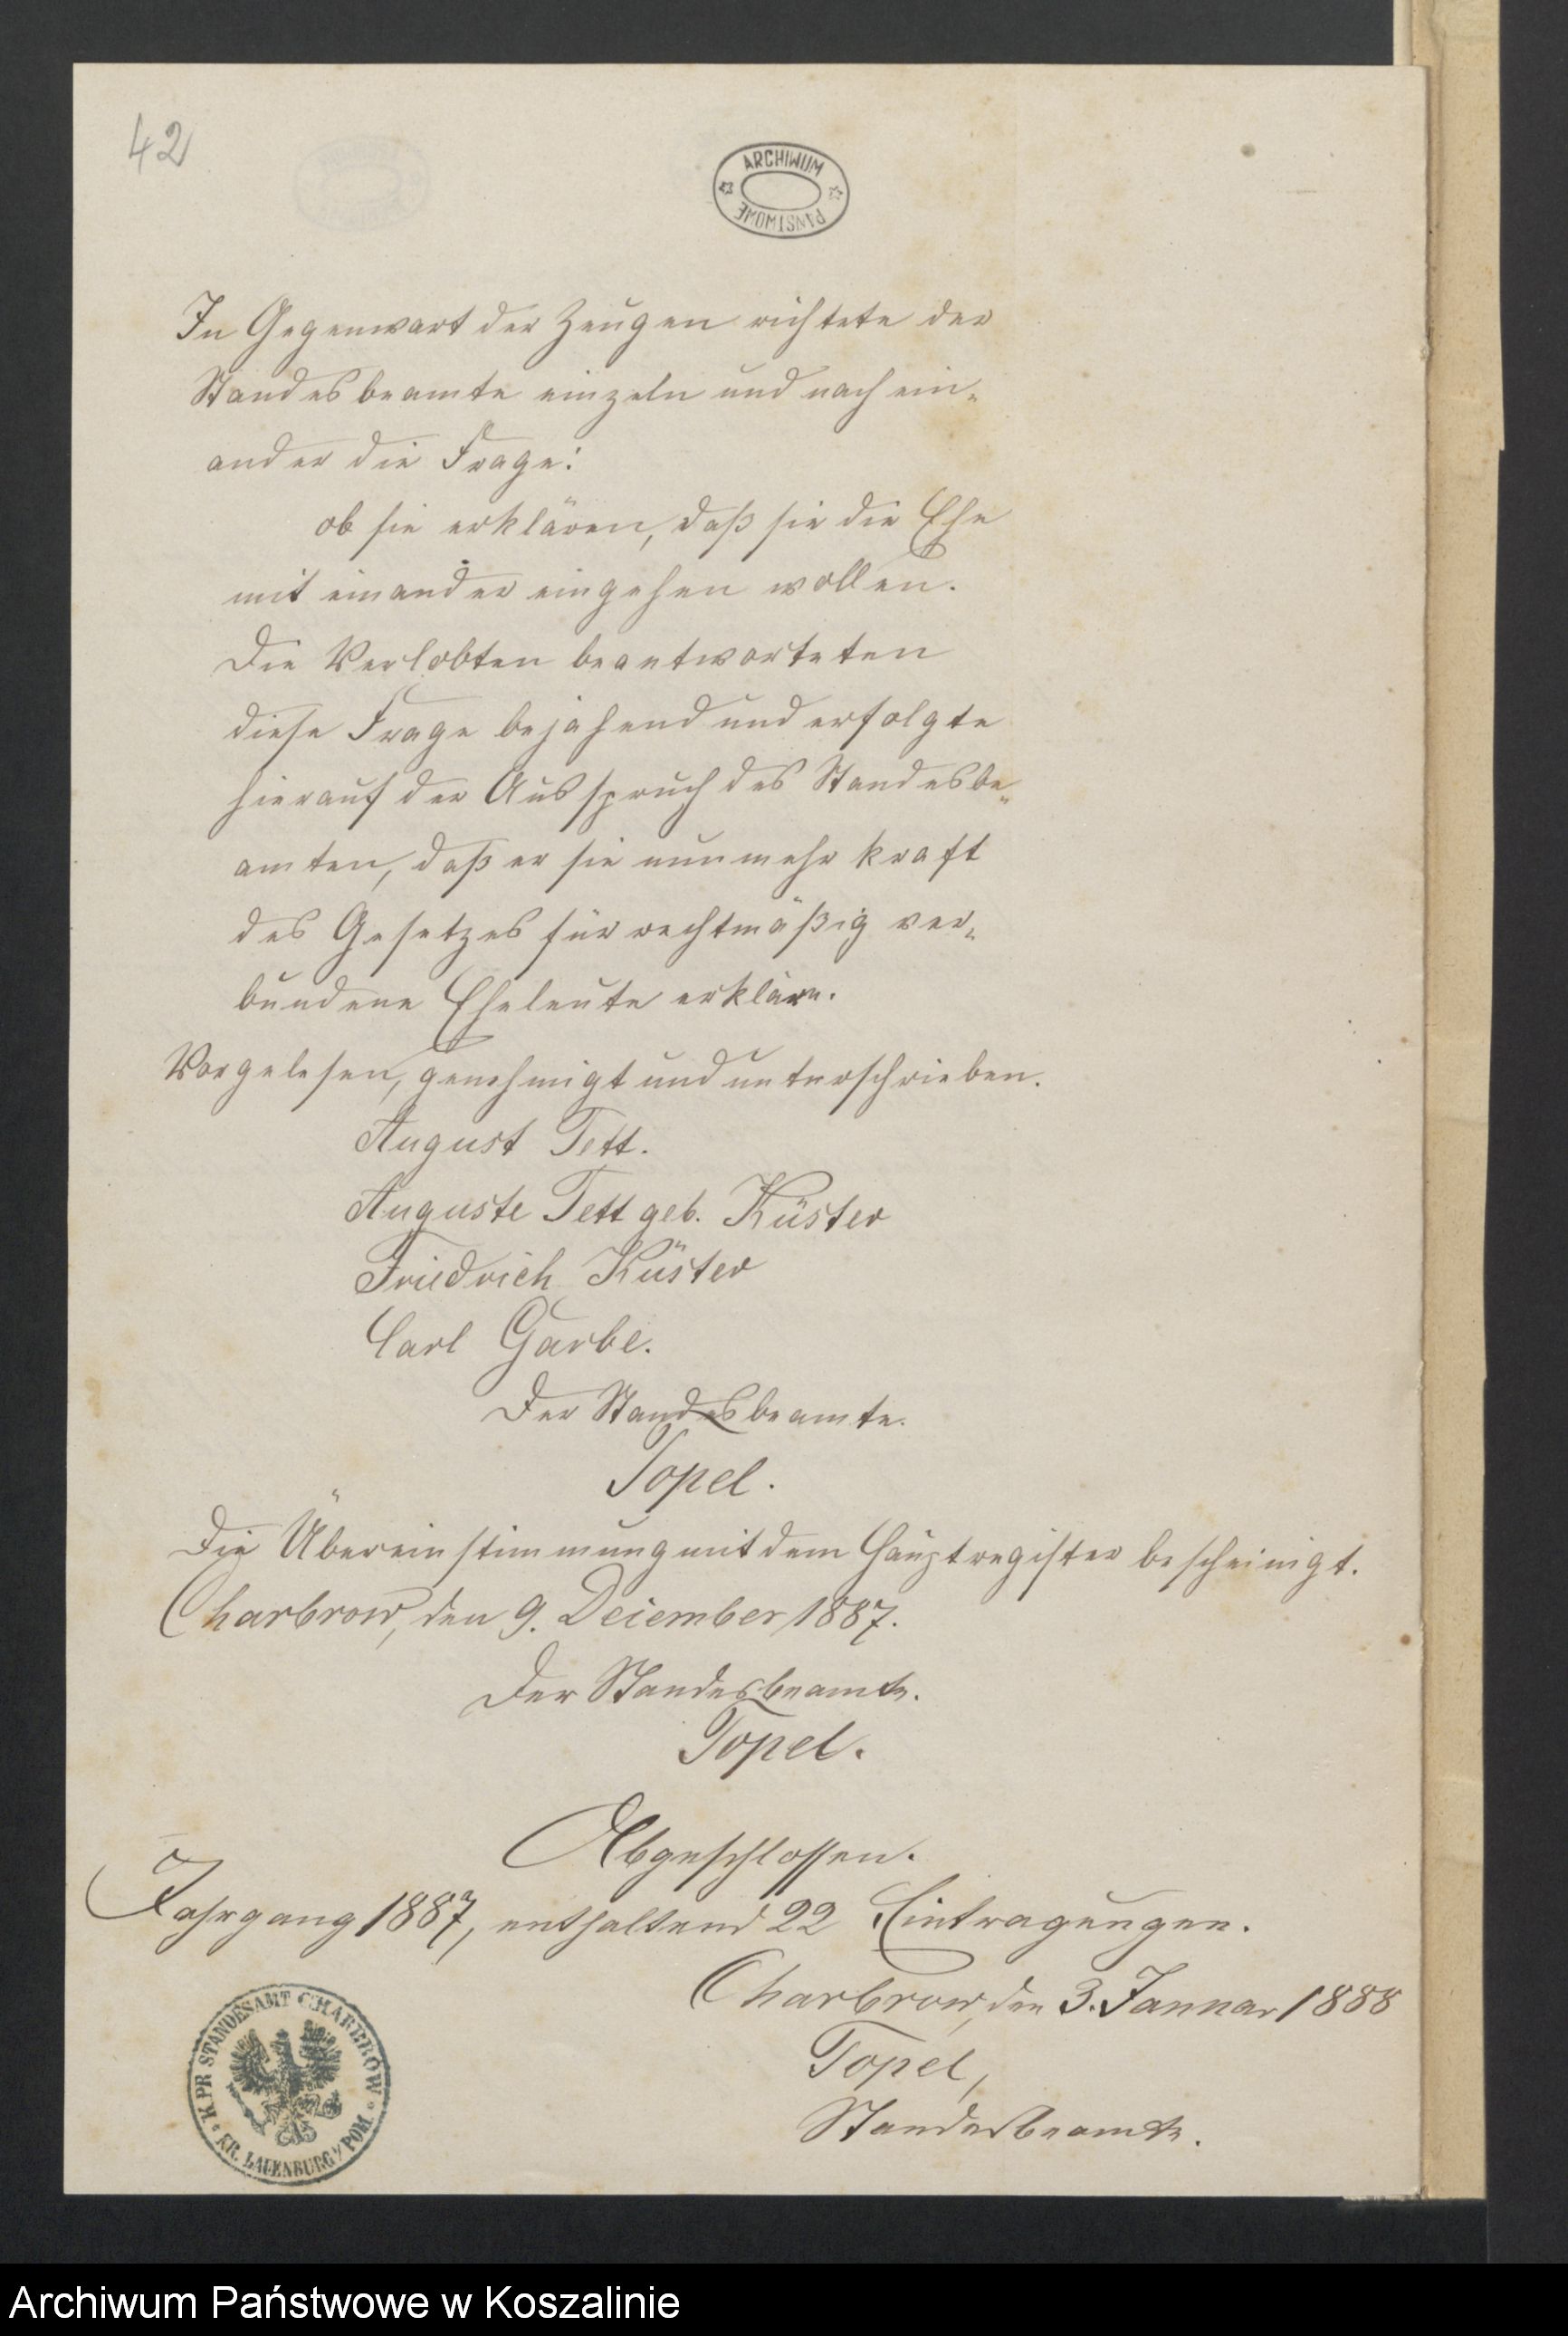 42
ARCHIWUM
PAŃSTWOWE
In Gegenwart der Zeugen richtete der
Standesbeamte einzeln und nach ein-
ander die Frage:
ob sie erklären, daß sie die Ehe
mit einander eingehen wollen.
Die Verlobten beantworteten
diese Frage bejahend und erfolgte
hierauf der Ausspruch des Standesbe-
amten, daß er sie nunmehr kraft
des Gesetzes für rechtmäßig ver-
bundene Eheleute erkläre.
Vorgelesen, genehmigt und unterschrieben.
August Tett.
Auguste Tett geb. Küster
Friedrich Küster
Carl Garbe.
Der Standesbeamte.
Topel.
Die Übereinstimmung mit dem Hauptregister bescheinigt.
Charbrow, den 9. Dezember 1887.
Der Standesbeamte.
Topel.
Abgeschlossen.
Jahrgang 1887, enthaltend 22 Eintragungen.
Charbrow, den 3. Januar 1888
Topel,
Standesbeamte.
K. PR STANDESAMT CHARBROW
KR. LAUENBURG I/ POM
Archiwum Państwowe w Koszalinie